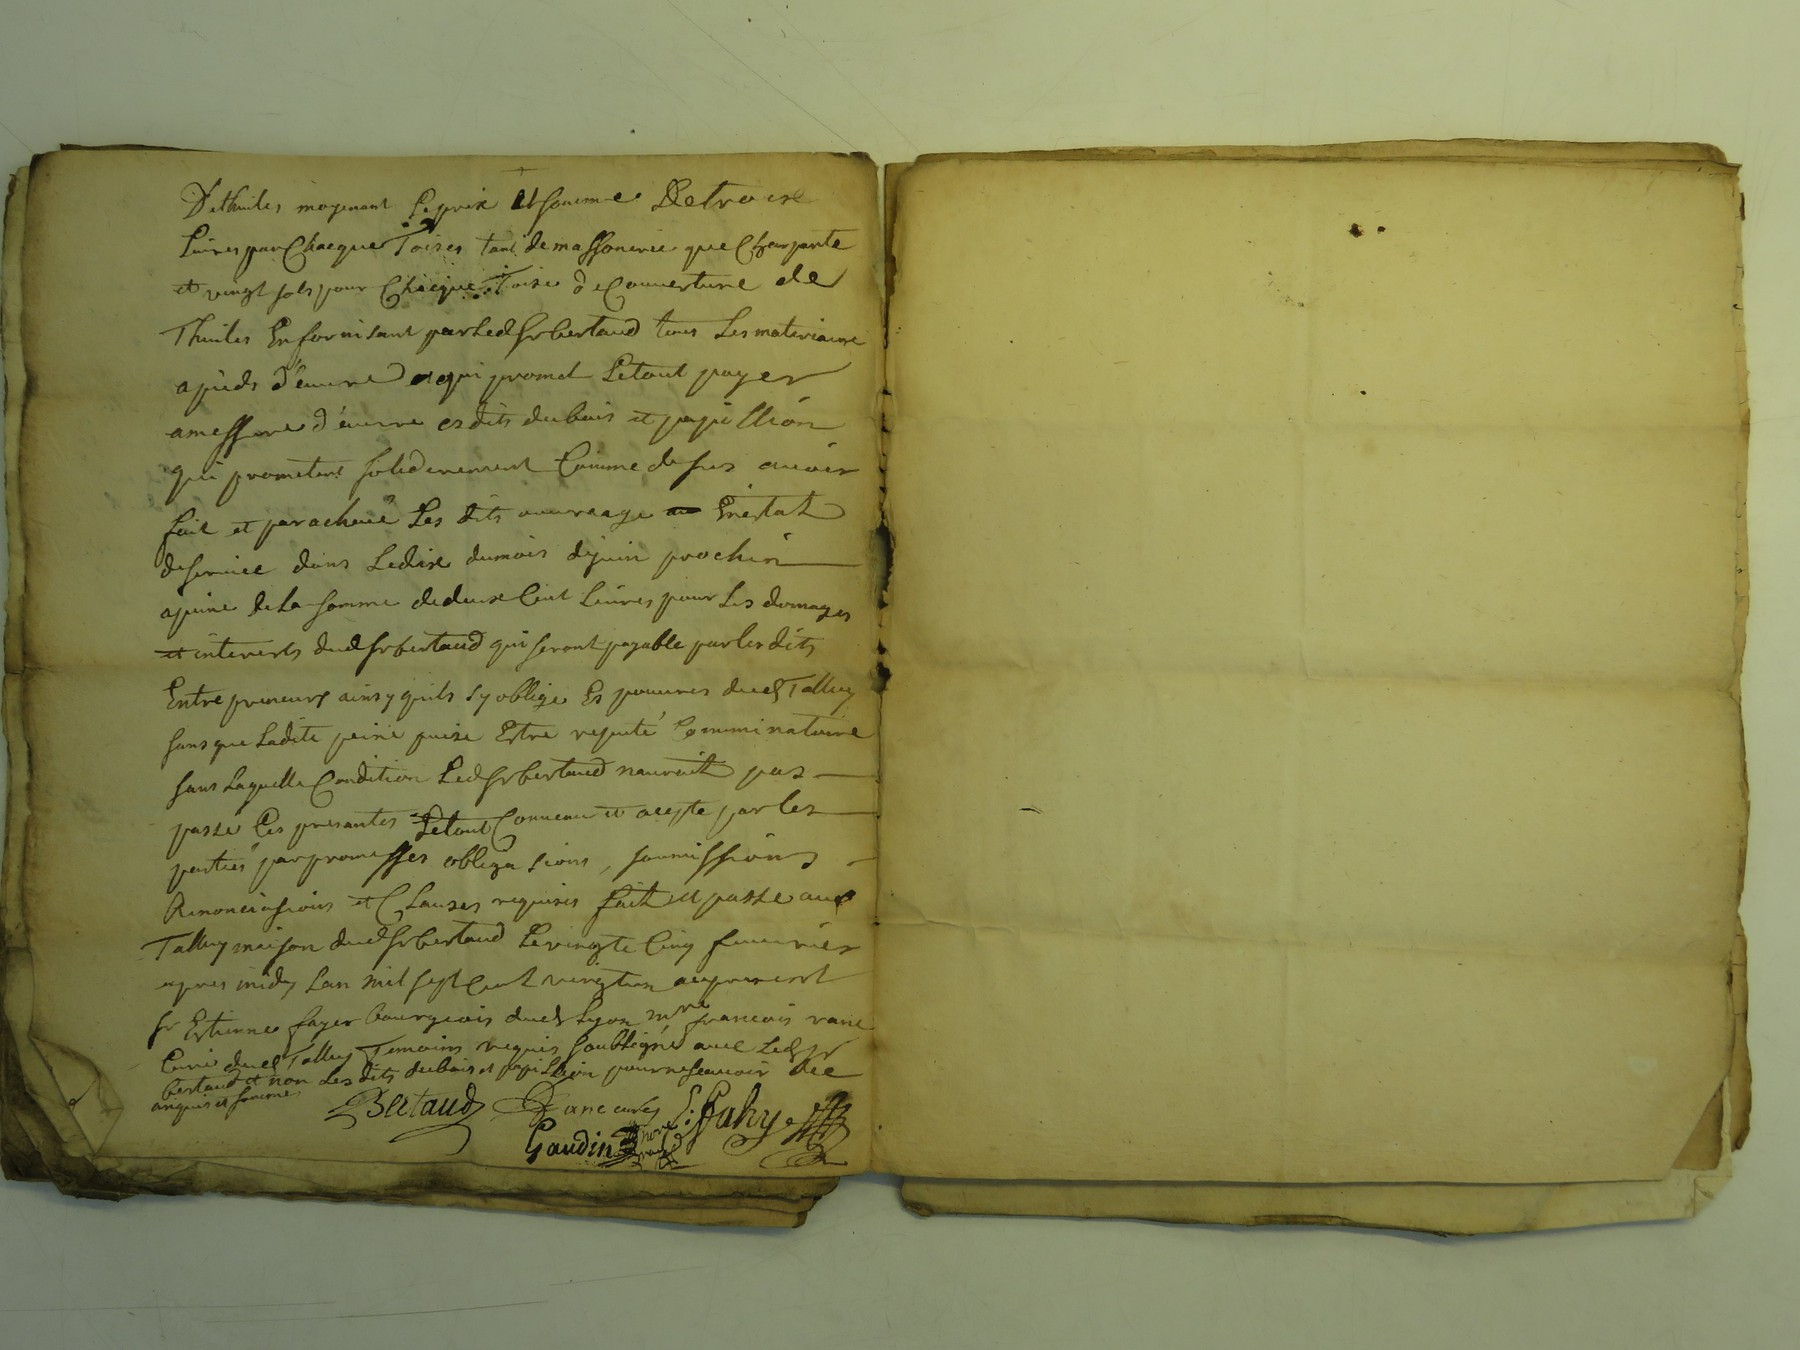 Dethuiles moyenant Le prix et somme Detrois
Livres par Chacque Toises tant de massonerie que Charpante
et vingt sols pour Chaque Toise de Couverture de
Thuiles En fornisant par Led Sr bertaud tous Les materiaux
a pieds d'euvre a qui promet Le tout payer
a messure d'euvre esdits dubois et papillion
qui prometent soliderement Comme desus avoir
fait et parachevé Les dits ouvraage En estat
de service dans Le dix du mois de juin prochin
a peine de La somme de deux Cent Livres pour Les domages
et interests dud Sr bertaud qui seront payable par lesdits
Entrepreneurs ainsy quils sy oblige Es dud Talluy
sans que Ladite peine puise Estre reputé Comminatoire
sans Laquelle Condition Led Sr bertaud nauroit pas
passé Ces presantes Le tout Convenu et acepte par les
parties par promesses obligasions, soumissions
Renonciasions et Clauses requises fait et passe aud
Talluy maison dud Sr bertaud Le vingte Cinq fevvrier
apres midy Lan mil sept Cent vingt un en present
Sr Estienne fayer bourgeois dud Lyon mre francois ranc
Curé dud Talluy Temoins requis soubsigné avec Led Sr
bertaud et non Les dits dubois et papillion pour ne scavoir de
anquis et somme
Bertaud Ranc curé
Gaudin